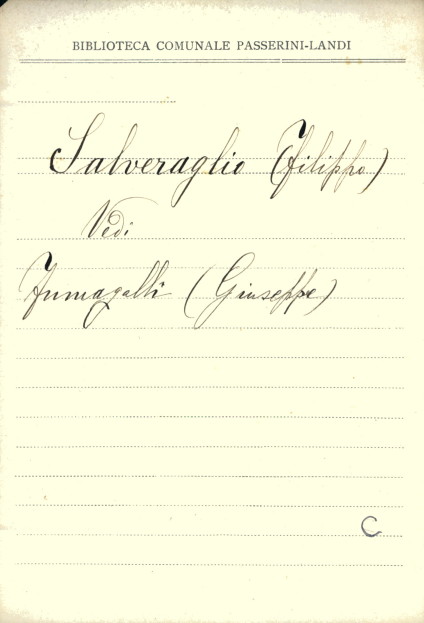 BIBLIOTECA COMUNALE PASSERINI-LANDI
Salveraglio (Filippo)
Vedi
Fumagalli (Giuseppe)
C